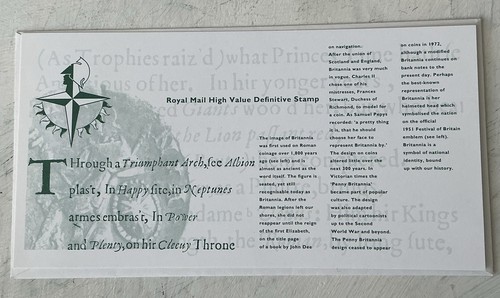 (As Trophies raiz'd) what Princes
Royal Mail High Value Definitive Stamp
Through a Triumphant Arch, see Albion
plas't, In Happy site, in Neptunes
armes embras't, In Power
and Plenty, on hir Cleeuy Throne
The image of Britannia
was first used on Roman
coinage over 1,800 years
ago (see left) and is
almost as ancient as the
word itself. The figure is
seated, yet still
recognisable today as
Britannia. After the
Roman legions left our
shores, she did not
reappear until the reign
of the first Elizabeth,
on the title page
of a book by John Dee
on navigation.
After the union of
Scotland and England,
Britannia was very much
in vogue. Charles II
chose one of his
mistresses, Frances
Stewart, Duchess of
Richmond, to model for
a coin. As Samuel Pepys
recorded: 'a pretty thing
it is, that he should
choose her face to
represent Britannia by.'
The design on coins
altered little over the
next 300 years. In
Victorian times the
'Penny Britannia'
became part of popular
culture. The design
was also adapted
by political cartoonists
up to the Second
World War and beyond.
The Penny Britannia
design ceased to appear
on coins in 1972,
although a modified
Britannia continues on
bank notes to the
present day. Perhaps
the best-known
representation of
Britannia is her
helmeted head which
symbolised the nation
on the official
1951 Festival of Britain
emblem (see left).
Britannia is a
symbol of national
identity, bound
up with our history.